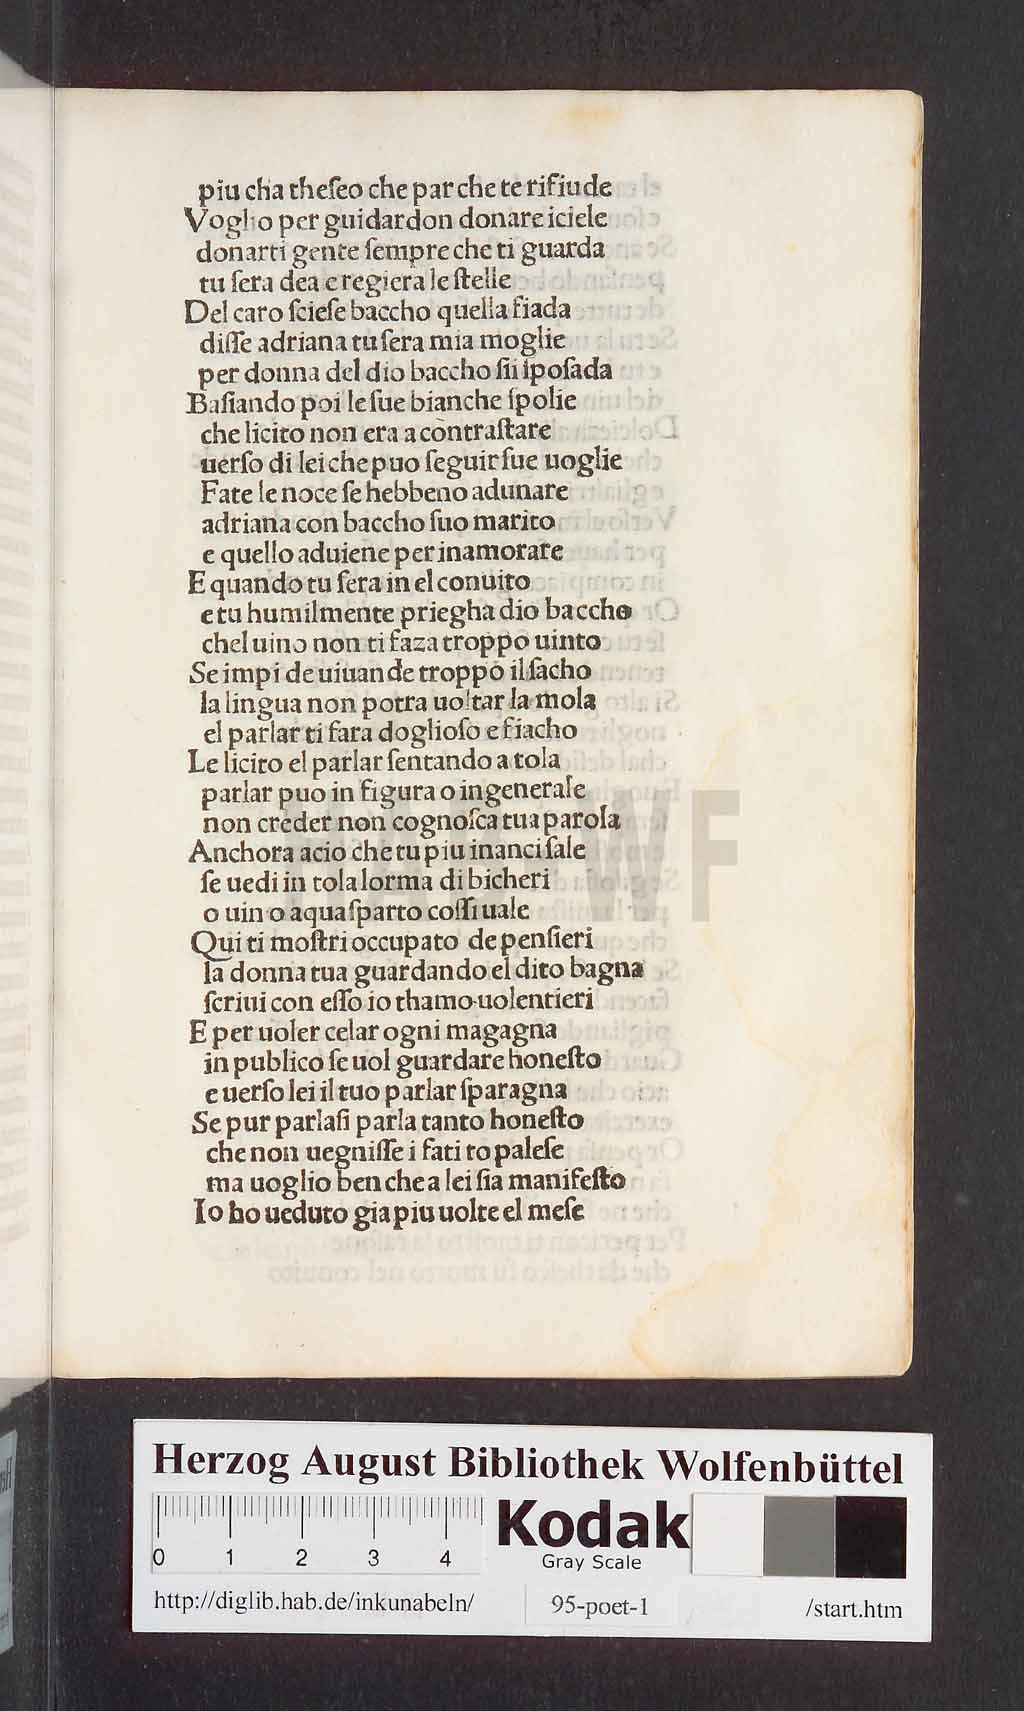 piu cha theſeo che par che te rifiude
Voglio per guidardon donare iciele
donarti gente ſempre che ti guarda
tu ſera dea e regiera le ſtelle
Del caro ſcieſe baccho quella fiada
diſſe adriana tu ſera mia moglie
per donna del dio baccho ſii ſpoſada
Baſiando poi le ſue bianche ſpolie
che licito non era a contraſtare
uerſo di lei che puo ſeguir ſue uoglie
Fate le noce ſe hebbeno adunare
adriana con baccho ſuo marito
e quello aduiene per inamorate
E quando tu ſera in el conuito
e tu humilmente priegha dio baccho
chel uino non ti faza troppo uinto
Se impi de uiuande troppo il ſacho
la lingua non potra uoltar la mola
el parlar ti fara doglioſo e fiacho
Le licito el parlar ſentando a tola
parlar puo in figura o ingenerale
non creder non cognoſca tua parola
Anchora acio che tu piu inanci ſale
ſe uedi in tola lorma di bicheri
o uin o aqua ſparto coſſi uale
Qui ti moſtri occupato de penſieri
la donna tua guardando el dito bagna
ſcriui con eſſo io thamo uolentieri
E per uoler celar ogni magagna
in publico ſe uol guardare honeſto
e uerſo lei il tuo parlar ſparagna
Se pur parlaſi parla tanto honeſto
che non uegniſſe i fati to paleſe
ma uoglio ben che a lei ſia manifeſto
Io ho ueduto gia piu uolte el meſe
HAB WF
Herzog August Bibliothek Wolfenbüttel
0 1 2 3 4
Kodak
Gray Scale
http://diglib.hab.de/inkunabeln/ 95-poet-1 /start.htm